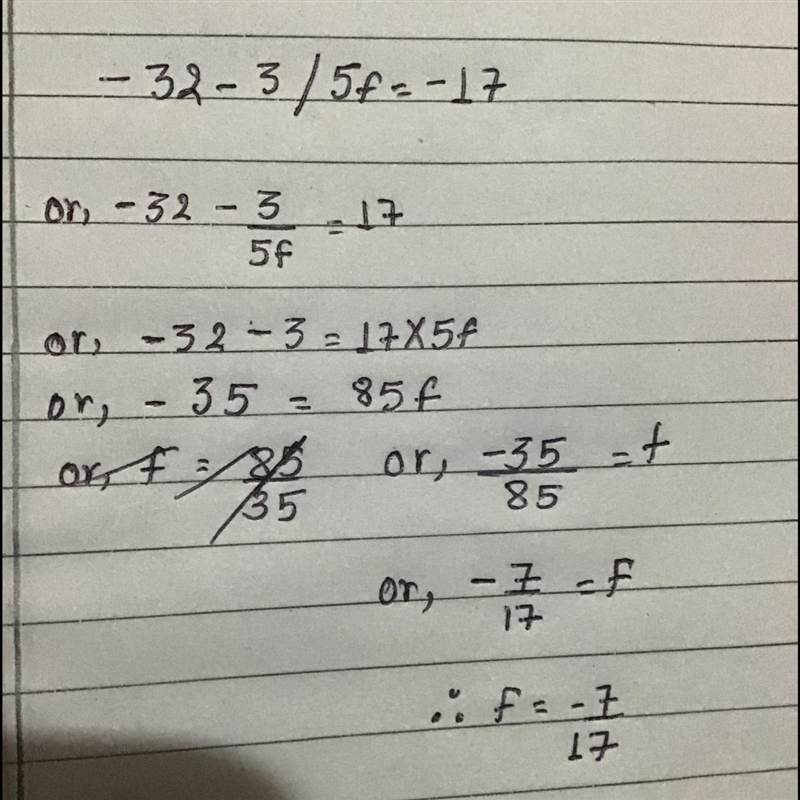 -32 - 3 / 5f = -17
or, -32 - 3/5f = 17
or, -32 - 3 = 17 × 5f
or, - 35 = 85f
or, f = 85/35 or, -35/85 = f
or, -7/17 = f
∴ f = -7/17